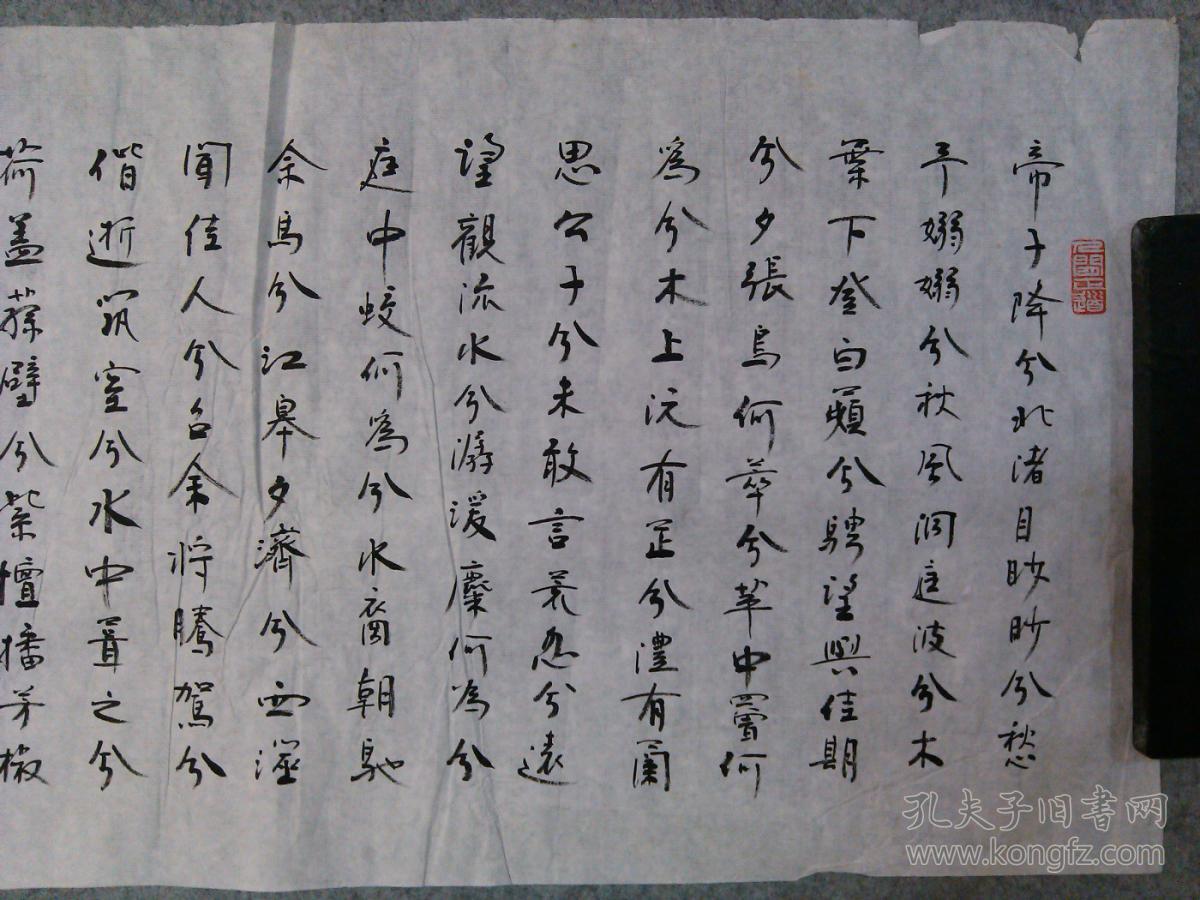 帝子降兮北渚目眇眇兮愁
予嫋嫋兮秋風洞庭波兮木
葉下登白薠兮騁望與佳期
兮夕張鳥何萃兮苹中罾何
爲兮木上沅有芷兮澧有蘭
思公子兮未敢言荒忽兮遠
望觀流水兮潺湲麋何為兮
庭中蛟何爲兮水裔朝馳
余馬兮江皋夕濟兮西澨
聞佳人兮召余將騰駕兮
偕逝筑室兮水中葺之兮
荷蓋蓀壁兮紫壇播芳椒
孔夫子旧书网
www.kongfz.com